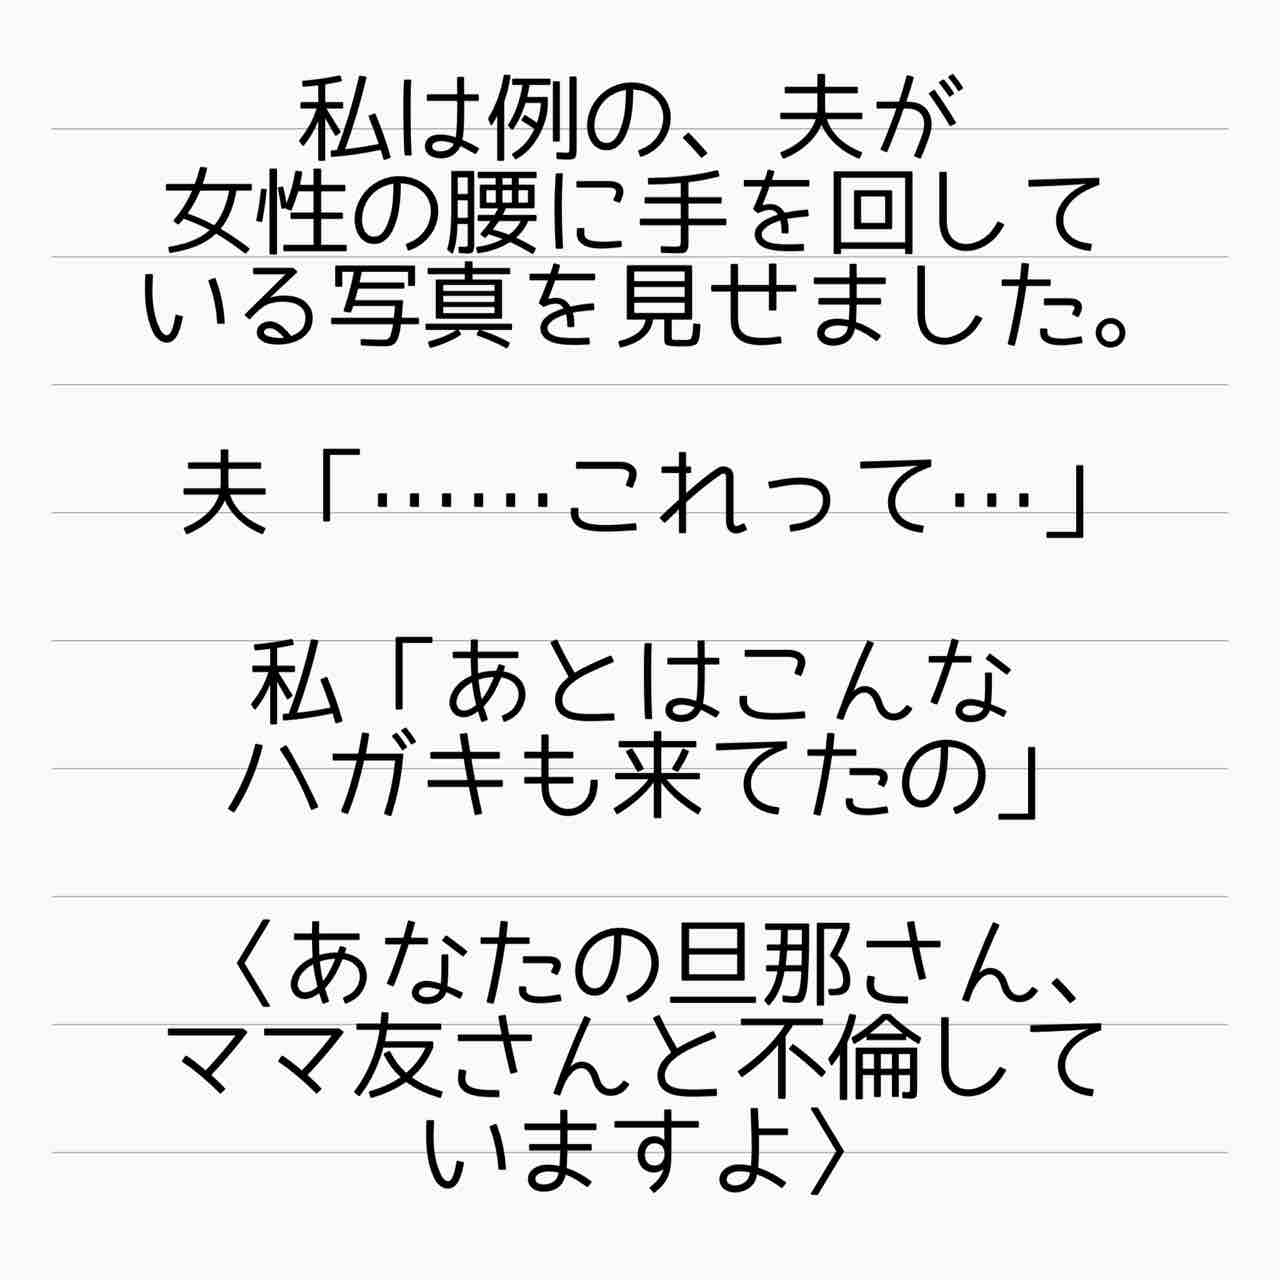 私は例の、夫が
女性の腰に手を回して
いる写真を見せました。
夫「……これって…」
私「あとはこんな
ハガキも来てたの」
〈あなたの旦那さん、
ママ友さんと不倫して
いますよ〉